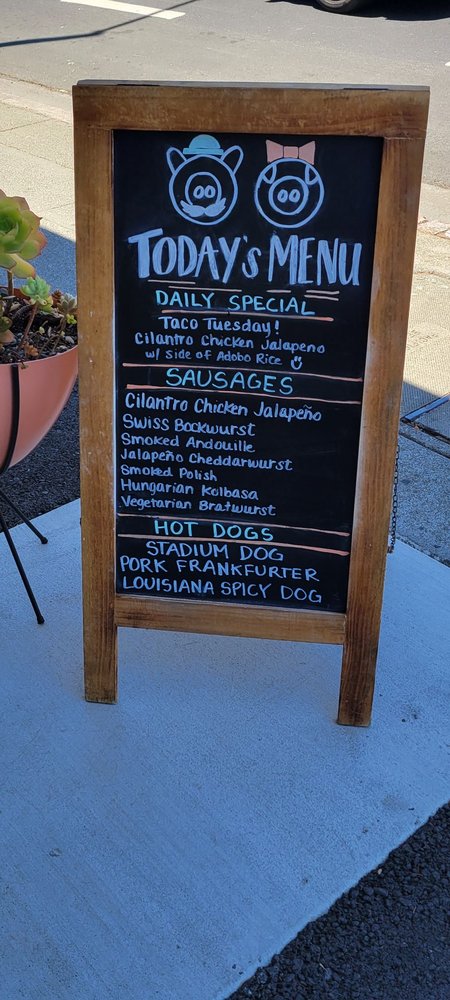 TODAY'S MENU
DAILY SPECIAL
Taco Tuesday!
Cilantro Chicken Jalapeno
w/ side of Adobo Rice
SAUSAGES
Cilantro Chicken Jalapeño
Swiss Bockwurst
Smoked Andouille
Jalapeño Cheddarwurst
Smoked Polish
Hungarian Kolbasa
Vegetarian Bratwurst
HOT DOGS
STADIUM DOG
PORK FRANKFURTER
LOUISIANA SPICY DOG